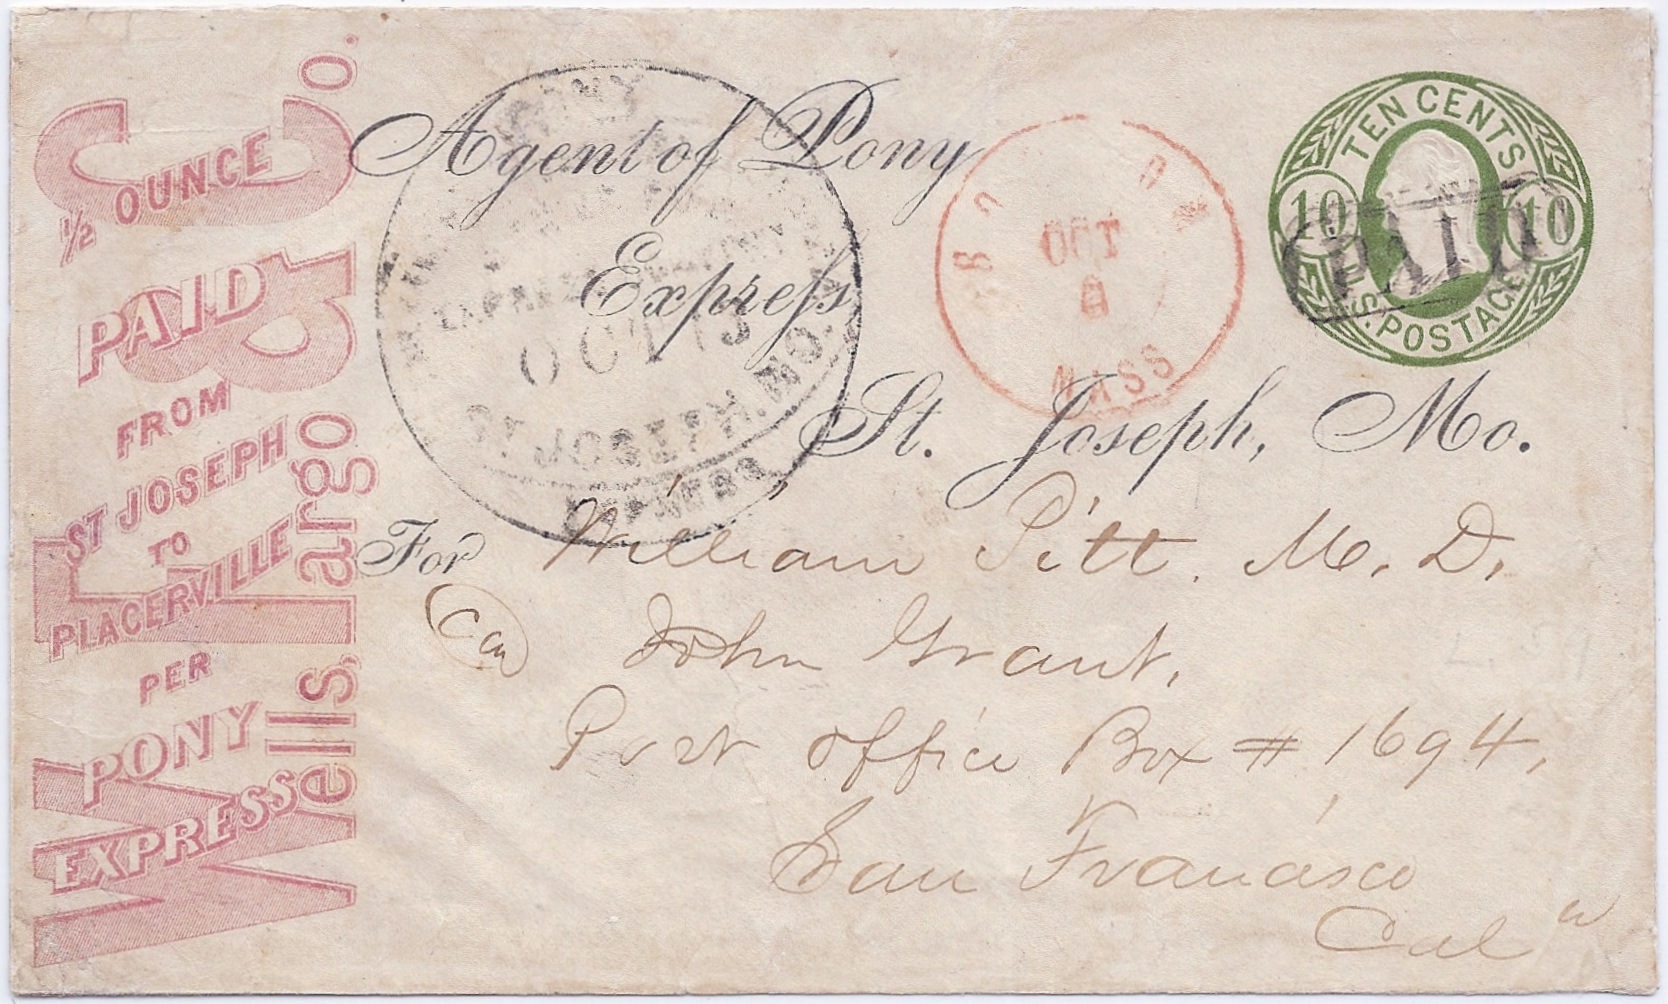 Wells, Fargo & Co.
½ OUNCE
PAID
FROM
ST JOSEPH
TO
PLACERVILLE
PER
PONY
EXPRESS
PONY
OCT 13
ST JOSEPH. MO.
EXPRESS
Agent of Pony
Express,
St. Joseph, Mo.
OCT
MASS
TEN CENTS
10 10
U.S. POSTAGE
PAID
For William Pitt. M. D.
Ca
John Grant,
Post Office Box # 1694,
San Francisco
Cal